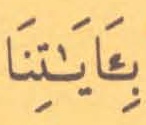 بِـَٔايَٰتِنَا